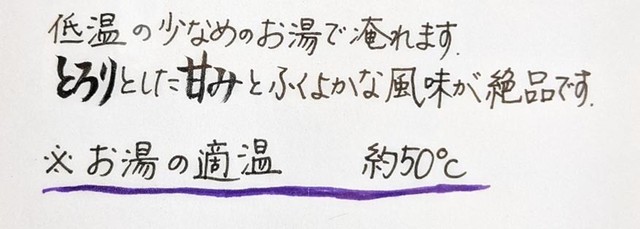 低温の少なめのお湯で淹れます.
とろりとした甘みとふくよかな風味が絶品です.
※お湯の適温 約50℃